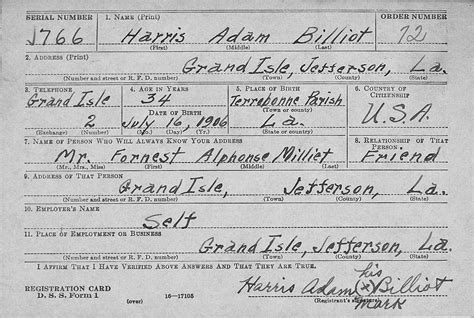 SERIAL NUMBER 1. NAME (Print) ORDER NUMBER
1766 Harris Adam Billiot 12
(First) (Middle) (Last)
2. ADDRESS (Print)
Grand Isle, Jefferson, La.
(Number and street or R. F. D. number) (Town) (County) (State)
3. TELEPHONE 4. AGE IN YEARS 5. PLACE OF BIRTH 6. COUNTRY OF CITIZENSHIP
Grand Isle 34 Terrebonne Parish
DATE OF BIRTH (Town or county)
2 July 16, 1906 La. U.S.A.
(Exchange) (Number) (Mo.) (Day) (Yr.) (State or country)
7. NAME OF PERSON WHO WILL ALWAYS KNOW YOUR ADDRESS 8. RELATIONSHIP OF THAT PERSON
Mr. Fornest Alphonse Milliet Friend
(Mr., Mrs., Miss) (First) (Middle) (Last)
9. ADDRESS OF THAT PERSON
Grand Isle, Jefferson, La.
(Number and street or R. F. D. number) (Town) (County) (State)
10. EMPLOYER'S NAME
Self
11. PLACE OF EMPLOYMENT OR BUSINESS
Grand Isle, Jefferson, La.
(Number and street or R. F. D. number) (Town) (County) (State)
I AFFIRM THAT I HAVE VERIFIED ABOVE ANSWERS AND THAT THEY ARE TRUE.
REGISTRATION CARD
D. S. S. Form 1 (over) 16—17105
his
Harris Adam (x) Billiot
(Registrant's signature)
Mark